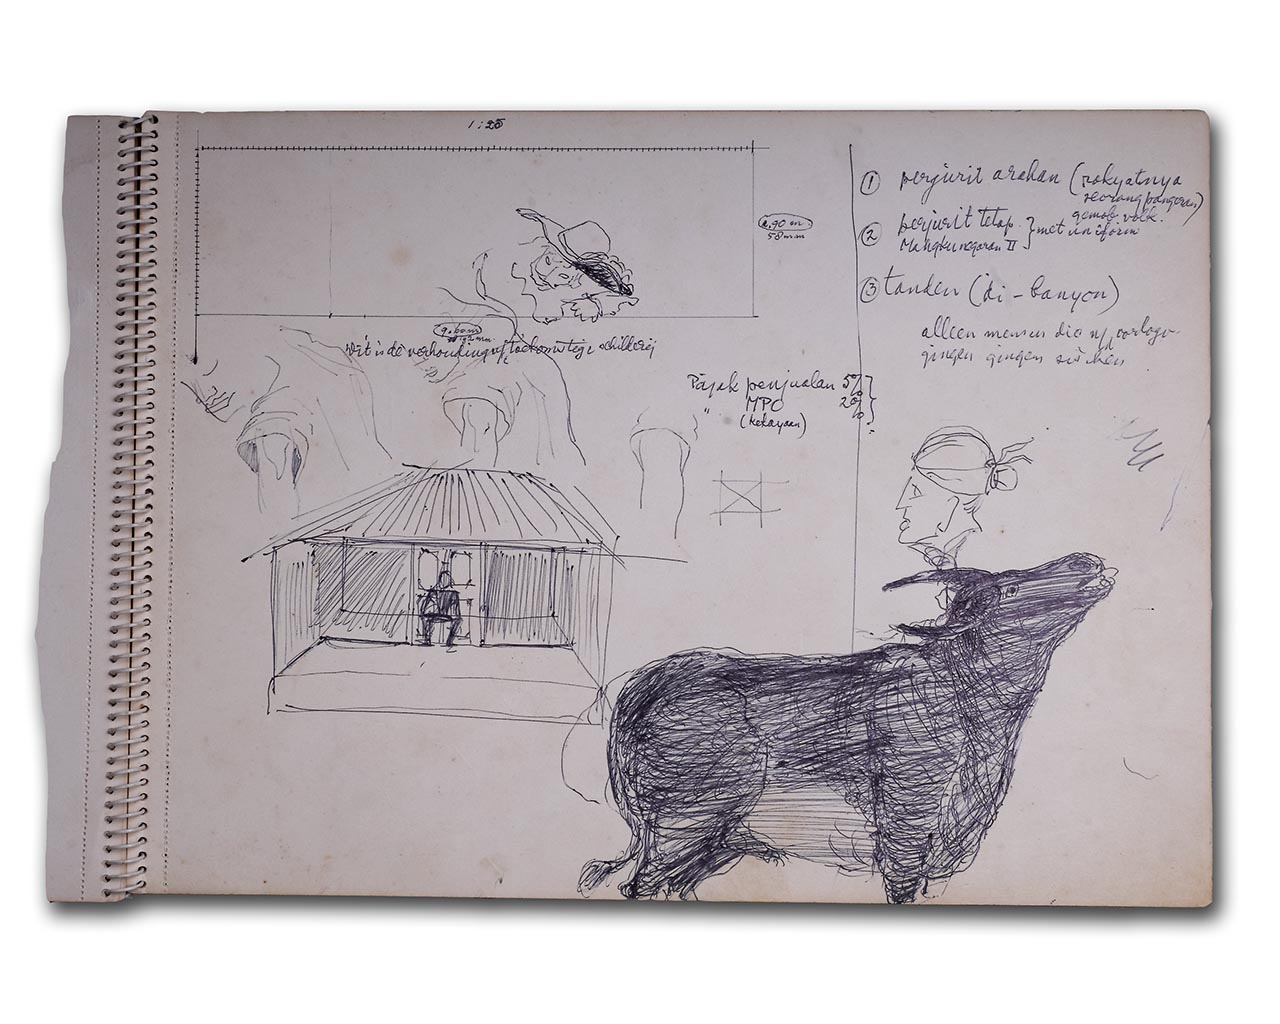 1:25
2.90 m.
58 mm
9.60 m
192 mm.
Dit is de verhouding v/ toekomstige schilderij
① perjurit arahan (rakyatnya
seorang pangeran)
gemob. volk.
② perjurit tetap } met uniform
Mangkunegaran II
③ tanden (di - banyon)
alleen mensen die n/ oorlogs-
gingen gingen
Pajak penjualan 5%
" MPO 20%
(kekayaan)